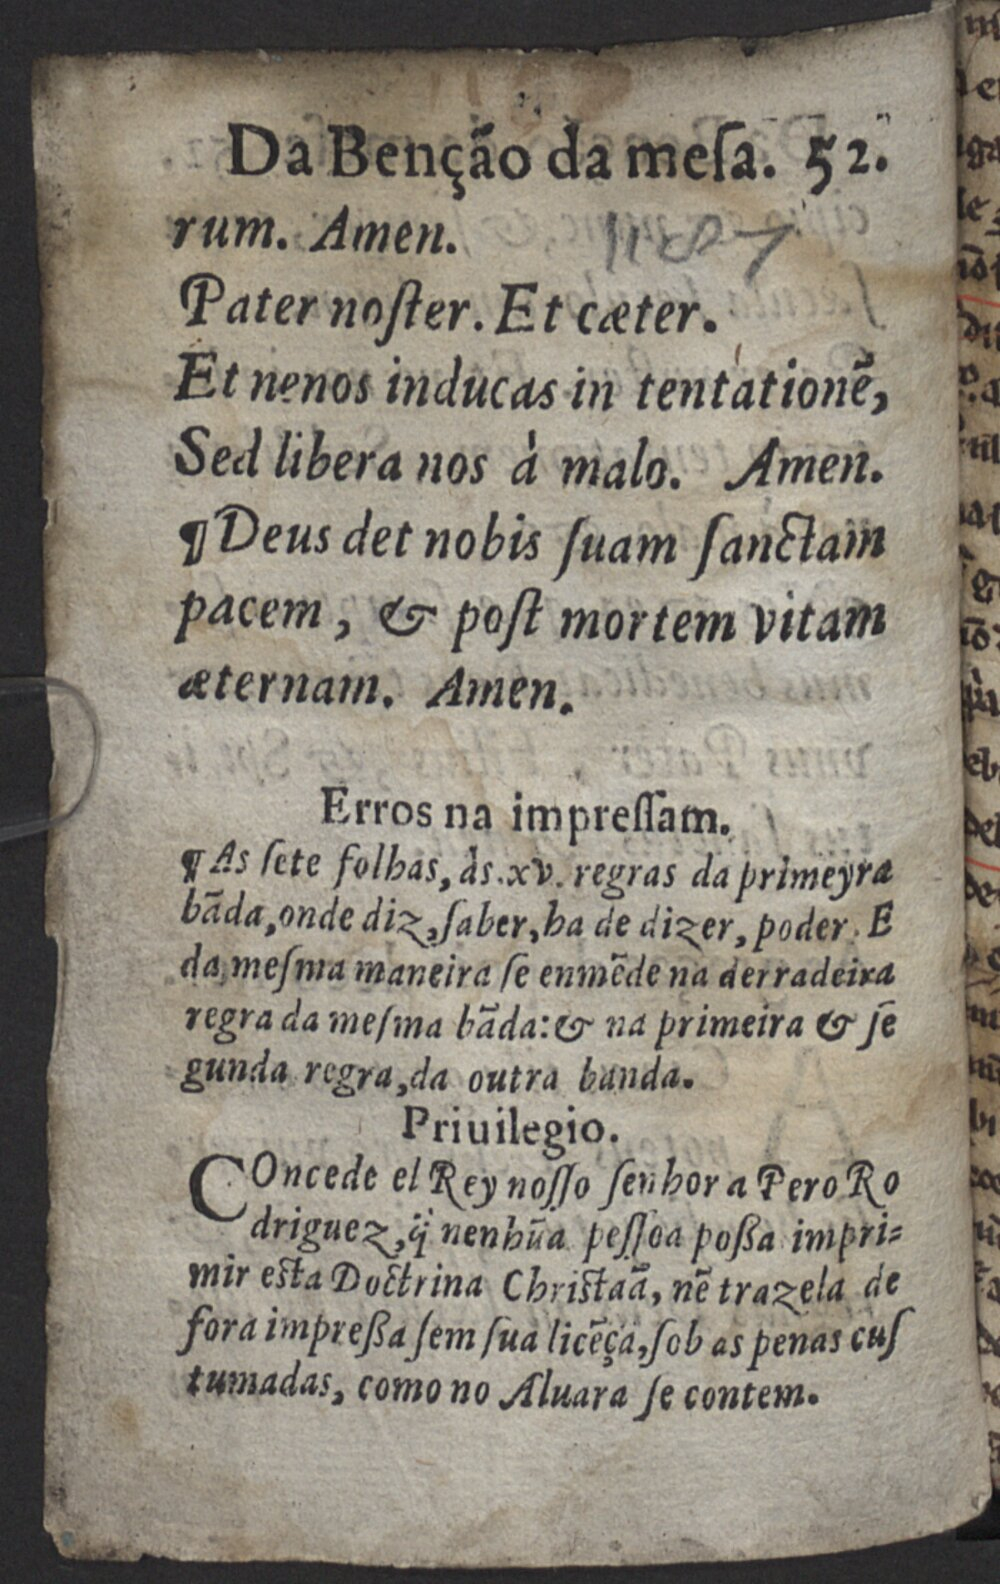 Da Benção da meſa. 52.
rum. Amen.
Pater noſter. Et cæter.
Et nenos inducas in tentationẽ,
Sed libera nos à malo. Amen.
¶ Deus det nobis ſuam ſanctam
pacem, & poſt mortem vitam
æternam. Amen.
Erros na impreſſam.
¶ As ſete folhas, às .xv. regras da primeyra
bãda, onde diz, ſaber, ha de dizer, poder. E
da meſma maneira ſe enmẽde na derradeira
regra da meſma bãda: & na primeira & ſẽ
gunda regra, da outra banda.
Priuilegio.
COncede el Rey noſſo ſenhor a Pero Ro
driguez, q̃ nenhũa peſſoa poßa impri-
mir eſta Doctrina Chriſtaã, nẽ trazela de
fora impreßa ſem ſua licẽça, ſob as penas cuſ
tumadas, como no Aluara ſe contem.